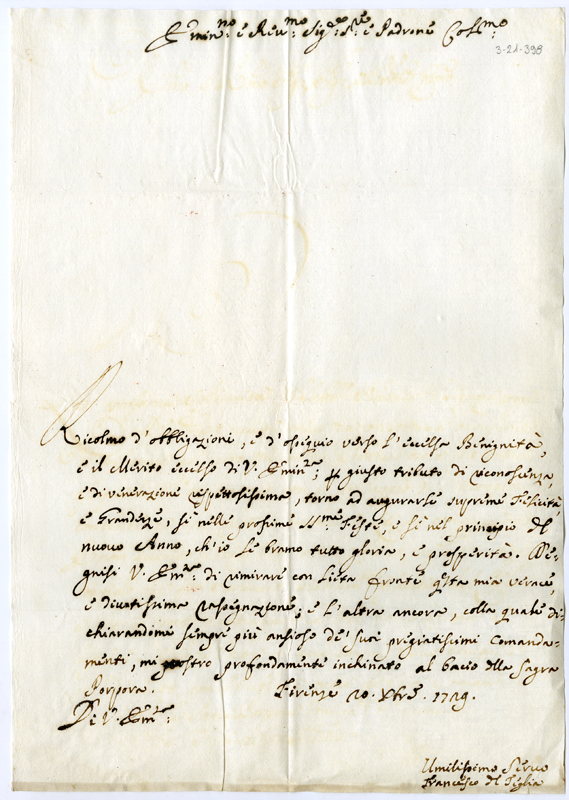 Emin.mo e Rev.mo Sig.re S.re e Padrone Col.mo
3-21-398
Ricolmo d'obbligazioni, e d'ossequio verso l'eccelsa Benignità,
e il Merito eccelso di V. Emin.za; p giusto tributo di riconoscenza,
e di venerazione rispettosissima, torno ad augurarle supreme Felicità
e Grandezze, sì nelle prossime SS.me Feste, e sì nel principio del
nuovo Anno, ch'io Le bramo tutto gloria, e prosperità. De-
gnisi V. Em.za di rimirare con lieta fronte q.sta mia verace,
e divotissima rassegnazione; e l'altra ancora, colla quale di-
chiarandomi sempre più ansioso de' suoi pregiatissimi comanda-
menti, mi prostro profondamente inchinato al bacio della Sagra
Porpora. Firenze 20. Xbre. 1729.
Di V. Em.za:
Umilissimo Servo
Francesco del Teglia